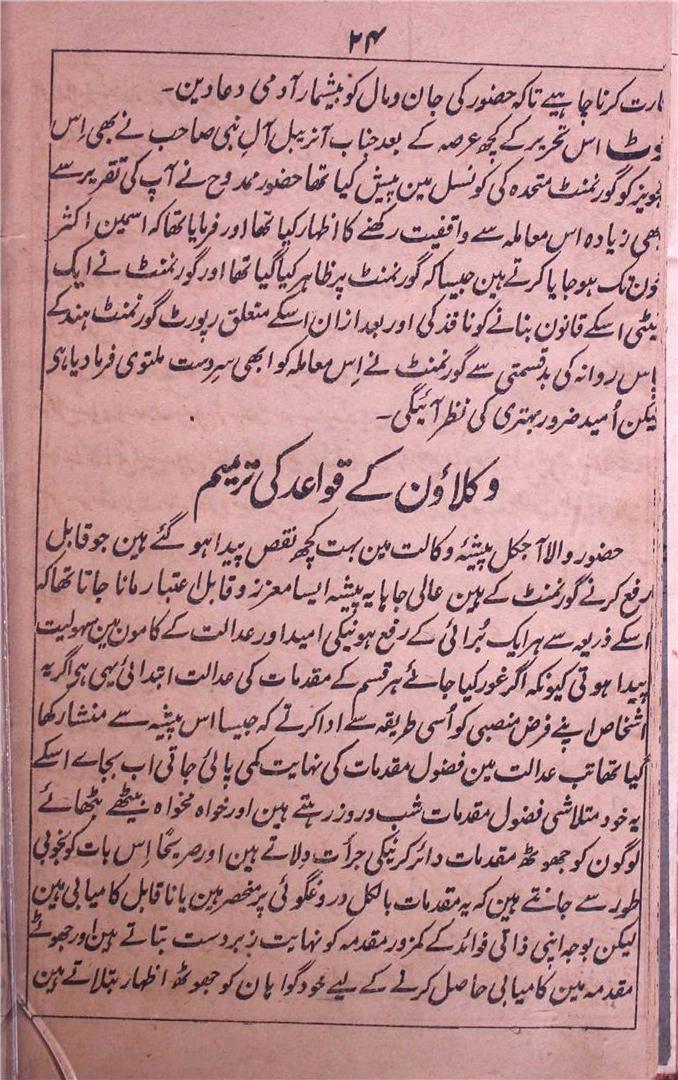 ۲۴
ارت کرنا چاہیے تاکہ حضور کی جان ومال کو بیشمار آدمی دعا دین۔
وٹ اس تحریر کے کچھ عرصہ کے بعد جناب آنریبل آل نبی صاحب نے بھی اِس
جویز کو گورنمنٹ متحدہ کی کونسل مین پیش کیا تھا حضور ممدوح نے آپ کی تقریر سے
بھی زیادہ اس معاملہ سے واقفیت رکھنے کا اظہار کیا تھا اور فرمایا تھا کہ اسمین اکثر
ون تک ہو جایا کرتے ہین جیسا کہ گورنمنٹ پر ظاہر کیا گیا تھا اور گورنمنٹ نے ایک
یٹی اسکے قانون بنانے کو نافذ کی اور بعد ازان اسکے متعلق رپورٹ گورنمنٹ ہند کے
اس روانہ کی بدقسمتی سے گورنمنٹ نے اِس معاملہ کو ابھی سرِ دست ملتوی فرما دیا ہی
لیکن اُمید ضرور بہتری کی نظر آئیگی۔
وکلاؤن کے قواعد کی ترمیم
حضور والا آجکل پیشۂ وکالت مین بہت کچھ نقص پیدا ہو گئے ہین جو قابل
رفع کرنے گورنمنٹ کے ہین عالی جاہا یہ پیشہ ایسا معزز و قابل اعتبار مانا جاتا تھا کہ
اسکے ذریعہ سے ہر ایک بُرائی کے رفع ہونیکی امید اور عدالت کے کامون مین سہولیت
پیدا ہوتی کیونکہ اگر غور کیا جائے ہر قسم کے مقدمات کی عدالت ابتدائی یہی ہی اگر یہ
اشخاص اپنے فرض منصبی کو اُسی طریقہ سے ادا کرتے کہ جیسا اس پیشہ سے منشا رکھا
گیا تھا تب عدالت مین فضول مقدمات کی نہایت کمی پائی جاتی اب بجاے اسکے
یہ خود متلاشی فضول مقدمات شب و روز رہتے ہین اور خواہ مخواہ بیٹھے بٹھائے
لوگون کو جھوٹھ مقدمات دائر کرنیکی جرأت دِلاتے ہین اور صریحًا اِس بات کو بخوبی
طور سے جانتے ہین کہ یہ مقدمات بالکل دروغگوئی پر منحصر ہین یا ناقابل کامیابی ہین
لیکن بوجہ اپنی ذاتی فوائد کے کمزور مقدمہ کو نہایت زبردست بتاتے ہین اور جھوٹے
مقدمہ مین کامیابی حاصل کرنے کے لیے خود گواہان کو جھوٹھ اظہار بتلاتے ہین